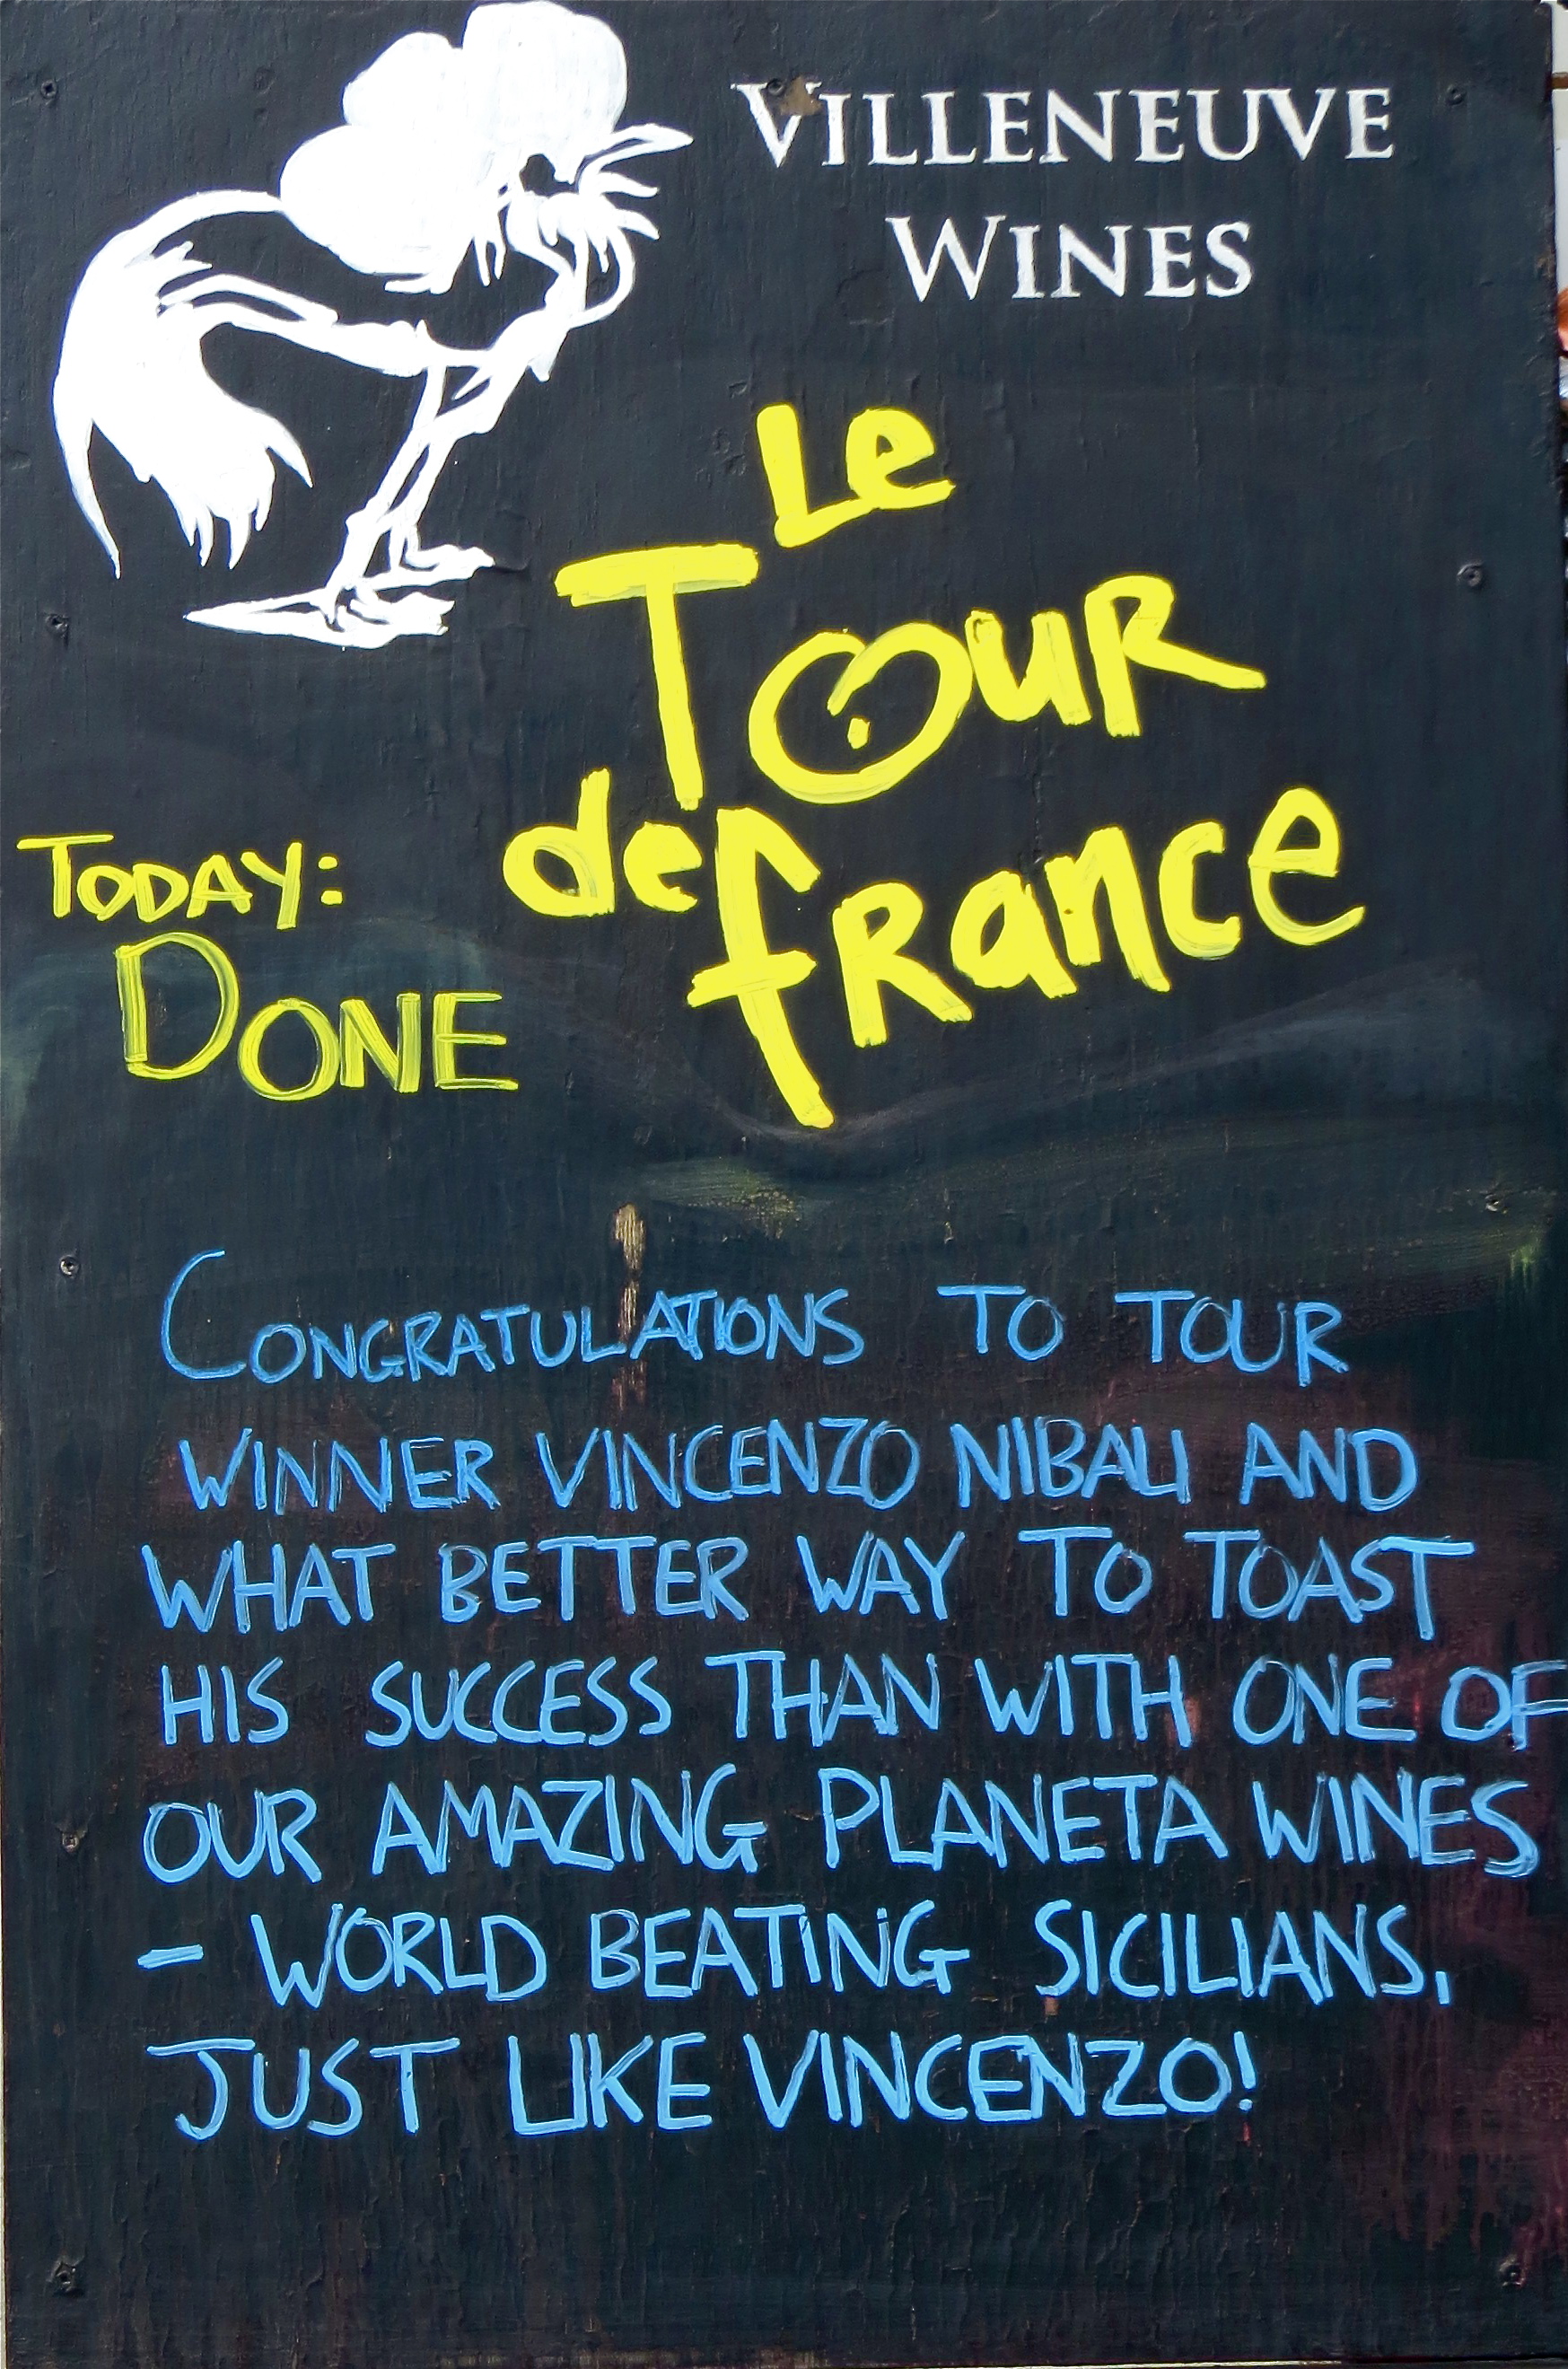 VILLENEUVE
WINES
Le
TOUR
de france
TODAY:
DONE
CONGRATULATIONS TO TOUR
WINNER VINCENZO NIBALI AND
WHAT BETTER WAY TO TOAST
HIS SUCCESS THAN WITH ONE OF
OUR AMAZING PLANETA WINES
- WORLD BEATING SICILIANS,
JUST LIKE VINCENZO!